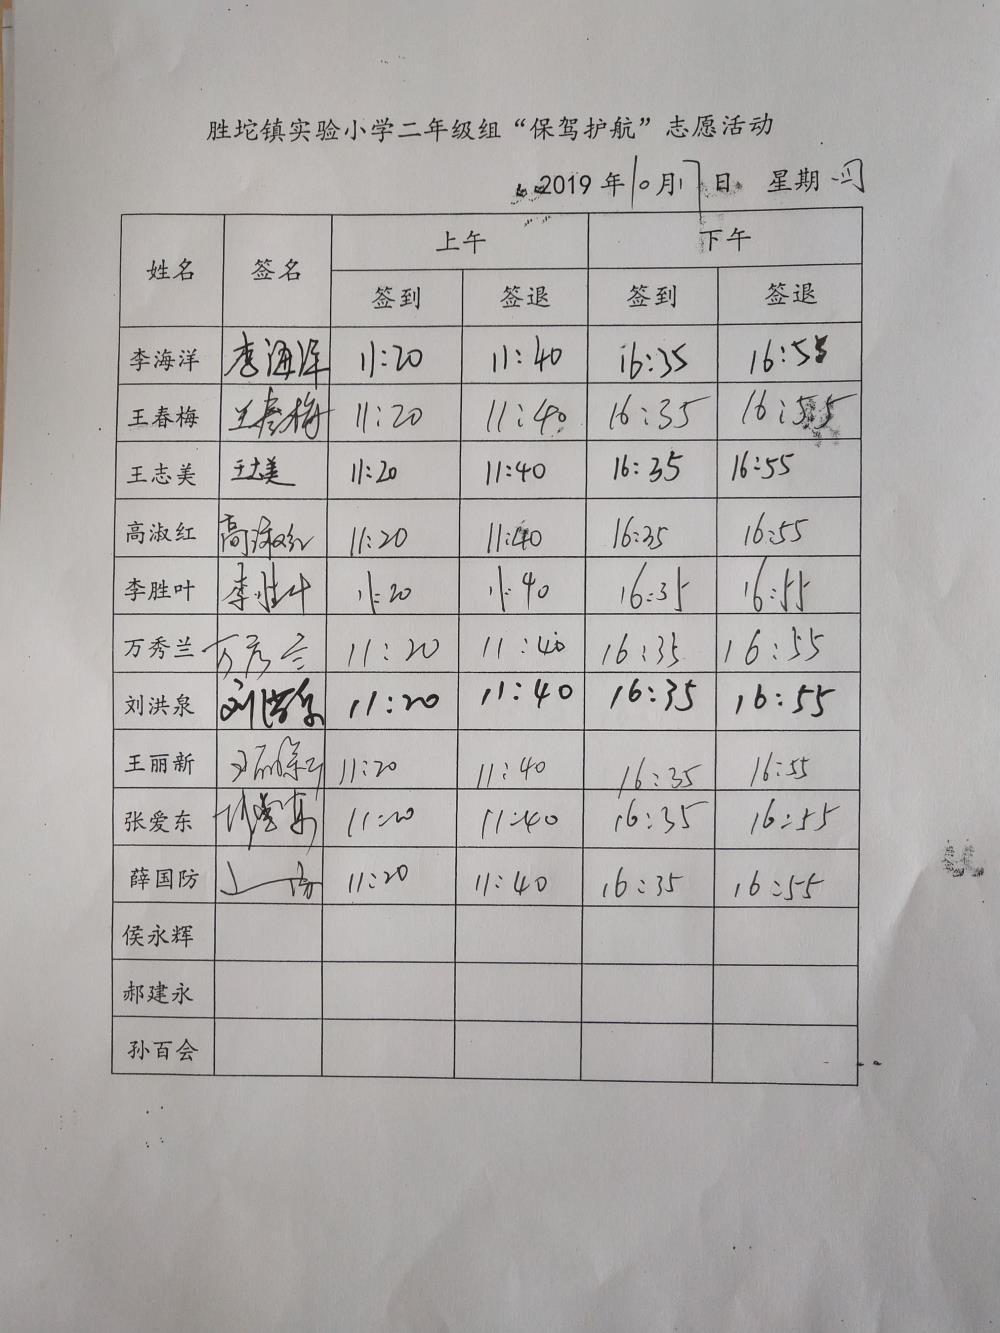 胜坨镇实验小学二年级组“保驾护航”志愿活动
2019年10月17日 星期四
姓名 签名 上午 下午
签到 签退 签到 签退
李海洋 李海洋 11:20 11:40 16:35 16:55
王春梅 王春梅 11:20 11:40 16:35 16:55
王志美 王志美 11:20 11:40 16:35 16:55
高淑红 高淑红 11:20 11:40 16:35 16:55
李胜叶 李胜叶 11:20 11:40 16:35 16:55
万秀兰 万秀兰 11:20 11:40 16:35 16:55
刘洪泉 刘洪泉 11:20 11:40 16:35 16:55
王丽新 王丽新 11:20 11:40 16:35 16:55
张爱东 11:20 11:40 16:35 16:55
薛国防 11:20 11:40 16:35 16:55
侯永辉
郝建永
孙百会